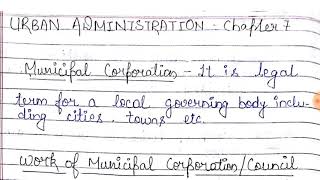 URBAN ADMINISTRATION - Chapter 7
Municipal Corporation - It is legal
term for a local governing body inclu-
ding cities, towns etc.
Work of Municipal Corporation/Council